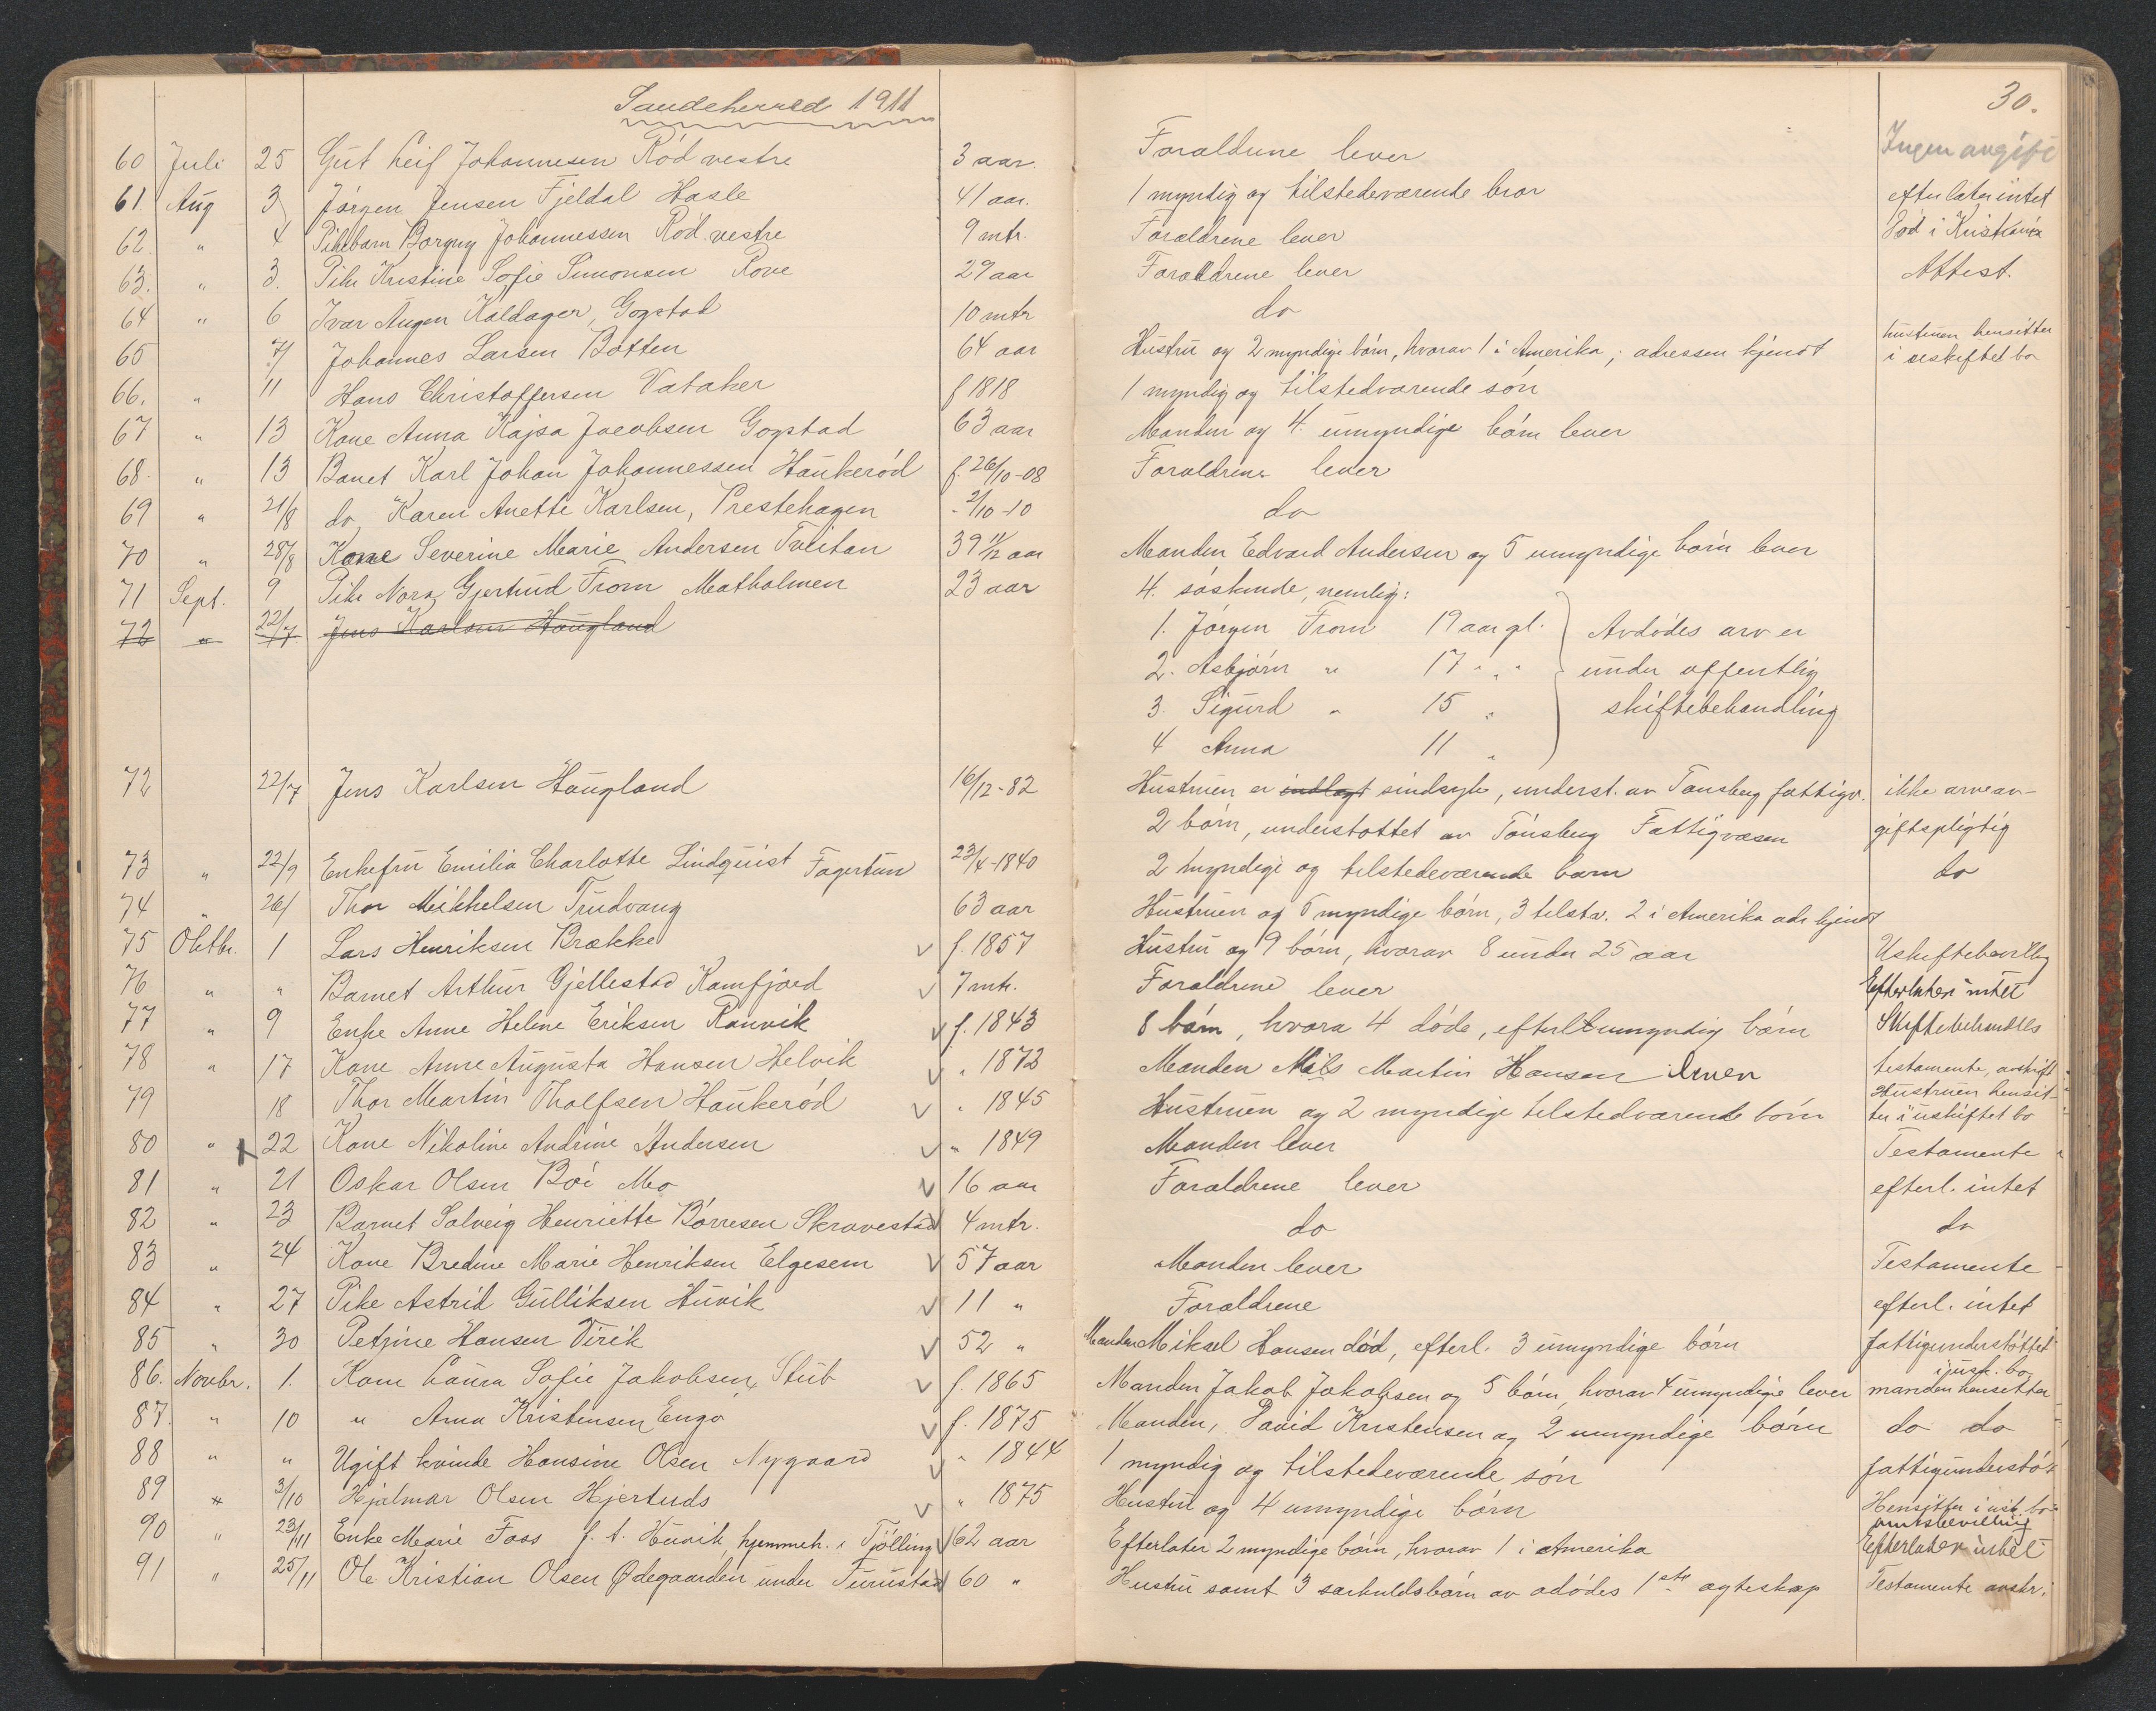 Sandeherred 1911
30.
Ingen angift
60 Juli 25 Gut Leif Johannesen Rød vestre 3 aar. Forældrene lever
61. Aug 3 Jørgen Jensen Fjeldal Hasle 41 aar. 1 myndig og tilstedeværende bror efterlater intet
62. " 4 Pikebarn Borgny Johannessen Rød vestre 9 mtr. Forældrene lever Død i Kristiania
63. " 3. Pike Kristine Sofie Simonsen Rove 29 aar Forældrene lever Attest.
64 " 6 Ivar Augen Kaldager, Gogstad 10 mtr do
65 7/ Johannes Larsen Botten 64 aar Hustru og 2 myndige børn, hvorav 1 i Amerika, adressen kjendt hustruen hensitter
i uskiftet bo
66. " 11 Hans Christoffersen Vataker f 1818 1 myndig og tilstedværende søn
67 " 13 Kone Anna Kajsa Jacobsen Gogstad 63 aar Manden og 4 umyndige børn lever
68. " 13 Banet Karl Johan Johannessen Haukerød f. 26/10-08 Forældrene lever
69 " 21/8 do Karen Anette Karlsen, Prestehagen - 2/10-10 do
70 " 28/8 Kone Severine Marie Andersen Tveitan 39 11/12 aar Manden Edvard Andersen og 5 umyndige børn lever
71 Sept. 9 Pike Nora Gjertrud From Matholmen 23 aar 4. søskende, nemlig:
72 " 22/7 Jens Karlsen Haugland 1. Jørgen From 19 aar gl. Avdødes arv er
2. Asbjørn " 17 " " under offentlig
3. Sigurd " 15 " skiftebehandling
4 Anna 11 "
72 22/7 Jens Karlsen Haugland 16/12-82 Hustruen er indlagt sindsyk, underst. av Tønsberg fattigv. ikke arveav-
2 børn, understøttet av Tønsberg Fattigvæsen giftspligtig
73 " 22/9 Enkefru Emilia Charlotte Lindquist Fagertun 23/4-1840 2 myndige og tilstedeværende barn do
74 " 26/ Thor Mikkelsen Trudvang 63 aar Hustruen og 5 myndige børn, 3 tilstv. 2 i Amerika adr kjendt
75 Oktbr. 1 Lars Henriksen Brække f. 1857 Hustru og 9 børn, hvorav 8 under 25 aar Uskiftebevillg
76 " " Barnet Arthur Gjellestad Kamfjord 7 mtr. Forældrene lever Efterlater intet
77 " 9 Enke Anne Helene Eriksen Ranvik f. 1843 8 børn, hvora 4 døde, efterl umyndig børn Skiftebehandles
78 " 17 Kone Anne Augusta Hansen Helvik " 1872 Manden Nils Martin Hansen lever testamente, avskrift
79 18 Thor Martin Tholfsen Haukerød " 1845 Hustruen og 2 myndige tilstedværende børn Hustruen hensit-
ter i uskiftet bo
80 " 22 Kone Nikoline Andrine Andersen " 1849 Manden lever Testamente
81 " 21 Oskar Olsen Bøi Mo 16 aar Forældrene lever efterl. intet
82 " 23 Barnet Solveig Henriette Børresen Skravestad 4 mtr. do do
83 " 24 Kone Bredine Marie Henriksen Elgesem 57 aar Manden lever Testamente
84 " 27 Pike Astrid Gulliksen Huvik 11 " Forældrene efterl. intet
85 " 30 Petrine Hansen Virik 52 " Manden Miksel Hansen død, efterl. 3 umyndige børn fattigunderstøttet
86. Novbr. 1. Kone Laura Sofie Jakobsen, Stub f. 1865 Manden Jakob Jakobsen og 5 børn, hvorav 4 umyndige lever i usk. bo
manden hensetter
87. " 10 " Anna Kristensen Engø f. 1875 Manden, David Kristensen og 2 umyndige børn do do
88 " " Ugift kvinde Hansine Olsen Nygaard " 1844 1 myndig og tilstedeværende søn fattigunderstøt
89 " 3/10 Hjalmar Olsen Hjertnæs " 1875 Hustru og 4 umyndige børn Hensitter i usk. bo
amtsbevilling
90 " 23/11 Enke Marie Foss f. t. Huvik, hjemmeh. i Tjølling 62 aar Efterlater 2 myndige børn, hvorav 1 i Amerika Efterlater intet
91 " 25/11 Ole Kristian Olsen Ødegaarden under Furustad 60 " Hustru samt 3 særkuldsbørn av adødes 1ste egteskap Testamente avskr.